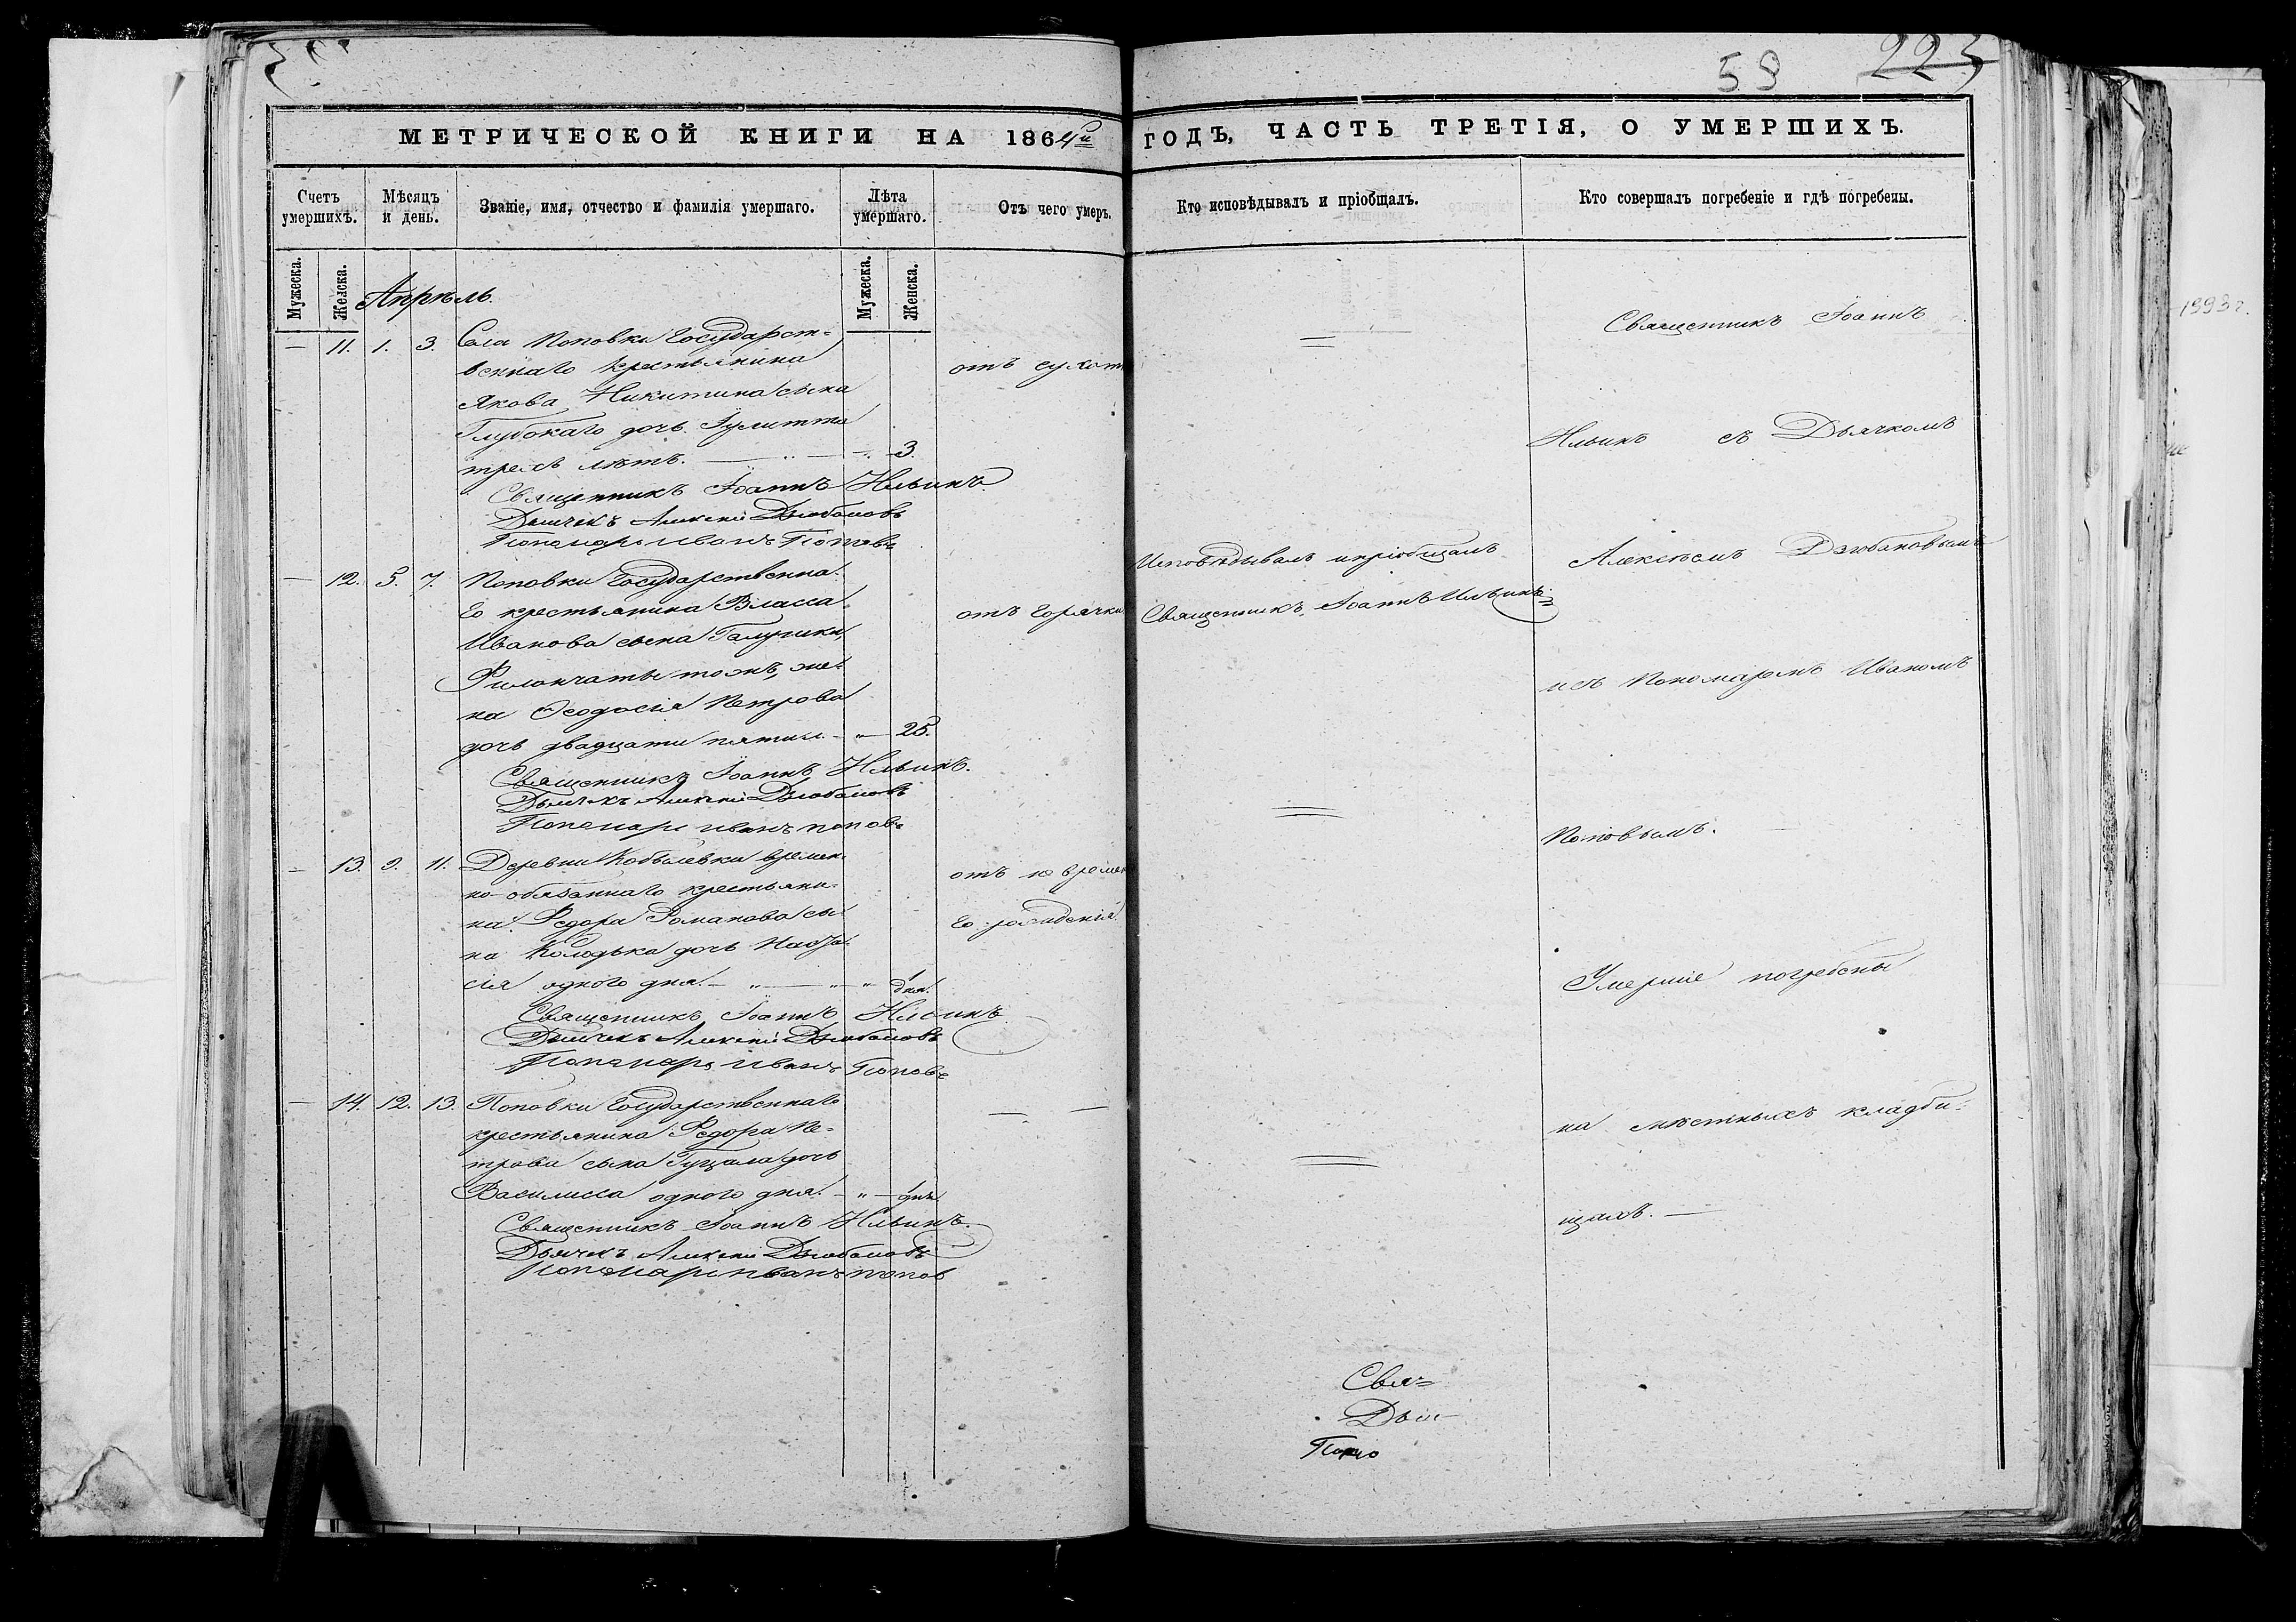 59 223
МЕТРИЧЕСКОЙ КНИГИ НА 1864й ГОДЪ, ЧАСТЬ ТРЕТІЯ, О УМЕРШИХЪ.
Счетъ умершихъ.
Мѣсяцъ и день.
Званіе, имя, отчество и фамилія умершаго.
Лѣта умершаго.
Отъ чего умеръ.
Кто исповѣдывалъ и пріобщалъ.
Кто совершалъ погребеніе и гдѣ погребены.
Мужеска.
Женска.
Мужеска.
Женска.
Апрѣль.
— 11. 1. 3. Села Поповки Государст-
веннаго крестьянина
Якова Никитина сына
Глубокаго дочь Іулитта
трехъ лѣтъ. — " — 3.
отъ сухот
Священникъ Іоаннъ Ильинъ
Дьячекъ Алексій Дзюбановъ
Пономарь Иванъ Поповъ
— 12. 5. 7. Поповки Государственна-
го крестьянина Власса
Иванова сына Галушки,
Филончаты тожъ, же-
на Ѳеодосія Петрова
дочь двадцати пяти л. — " — 25.
отъ горячки
Исповѣдывалъ и пріобщалъ
Священникъ Іоаннъ Ильинъ
Священникъ Іоаннъ Ильинъ.
Дьячекъ Алексій Дзюбановъ
Пономарь Иванъ Поповъ
— 13. 9. 11. Деревни Кобылевки времен-
но-обязаннаго крестьяни-
на Федора Романова сы-
на Колодька дочь
сія одного дня. — " — " — " дня.
отъ не времен
го рожденія.
Священникъ Іоаннъ Ильинъ
Дьячекъ Алексій Дзюбановъ
Пономарь Иванъ Поповъ
— 14. 12. 13. Поповки Государственнаго
крестьянина Федора Пе-
трова сына Гуцала дочь
Василисса одного дня. — " — дня.
Священникъ Іоаннъ Ильинъ.
Дьячекъ Алексій Дзюбановъ
Пономарь Иванъ Попов
Священникъ Іоаннъ
Ильинъ съ Дьячкомъ
Алексѣемъ Дзюбановымъ
и съ Пономаремъ Иваномъ
Поповымъ.
Умершіе погребены
на мѣстныхъ кладби-
щахъ. —
Свя-
Дья-
Поно
1993 г.